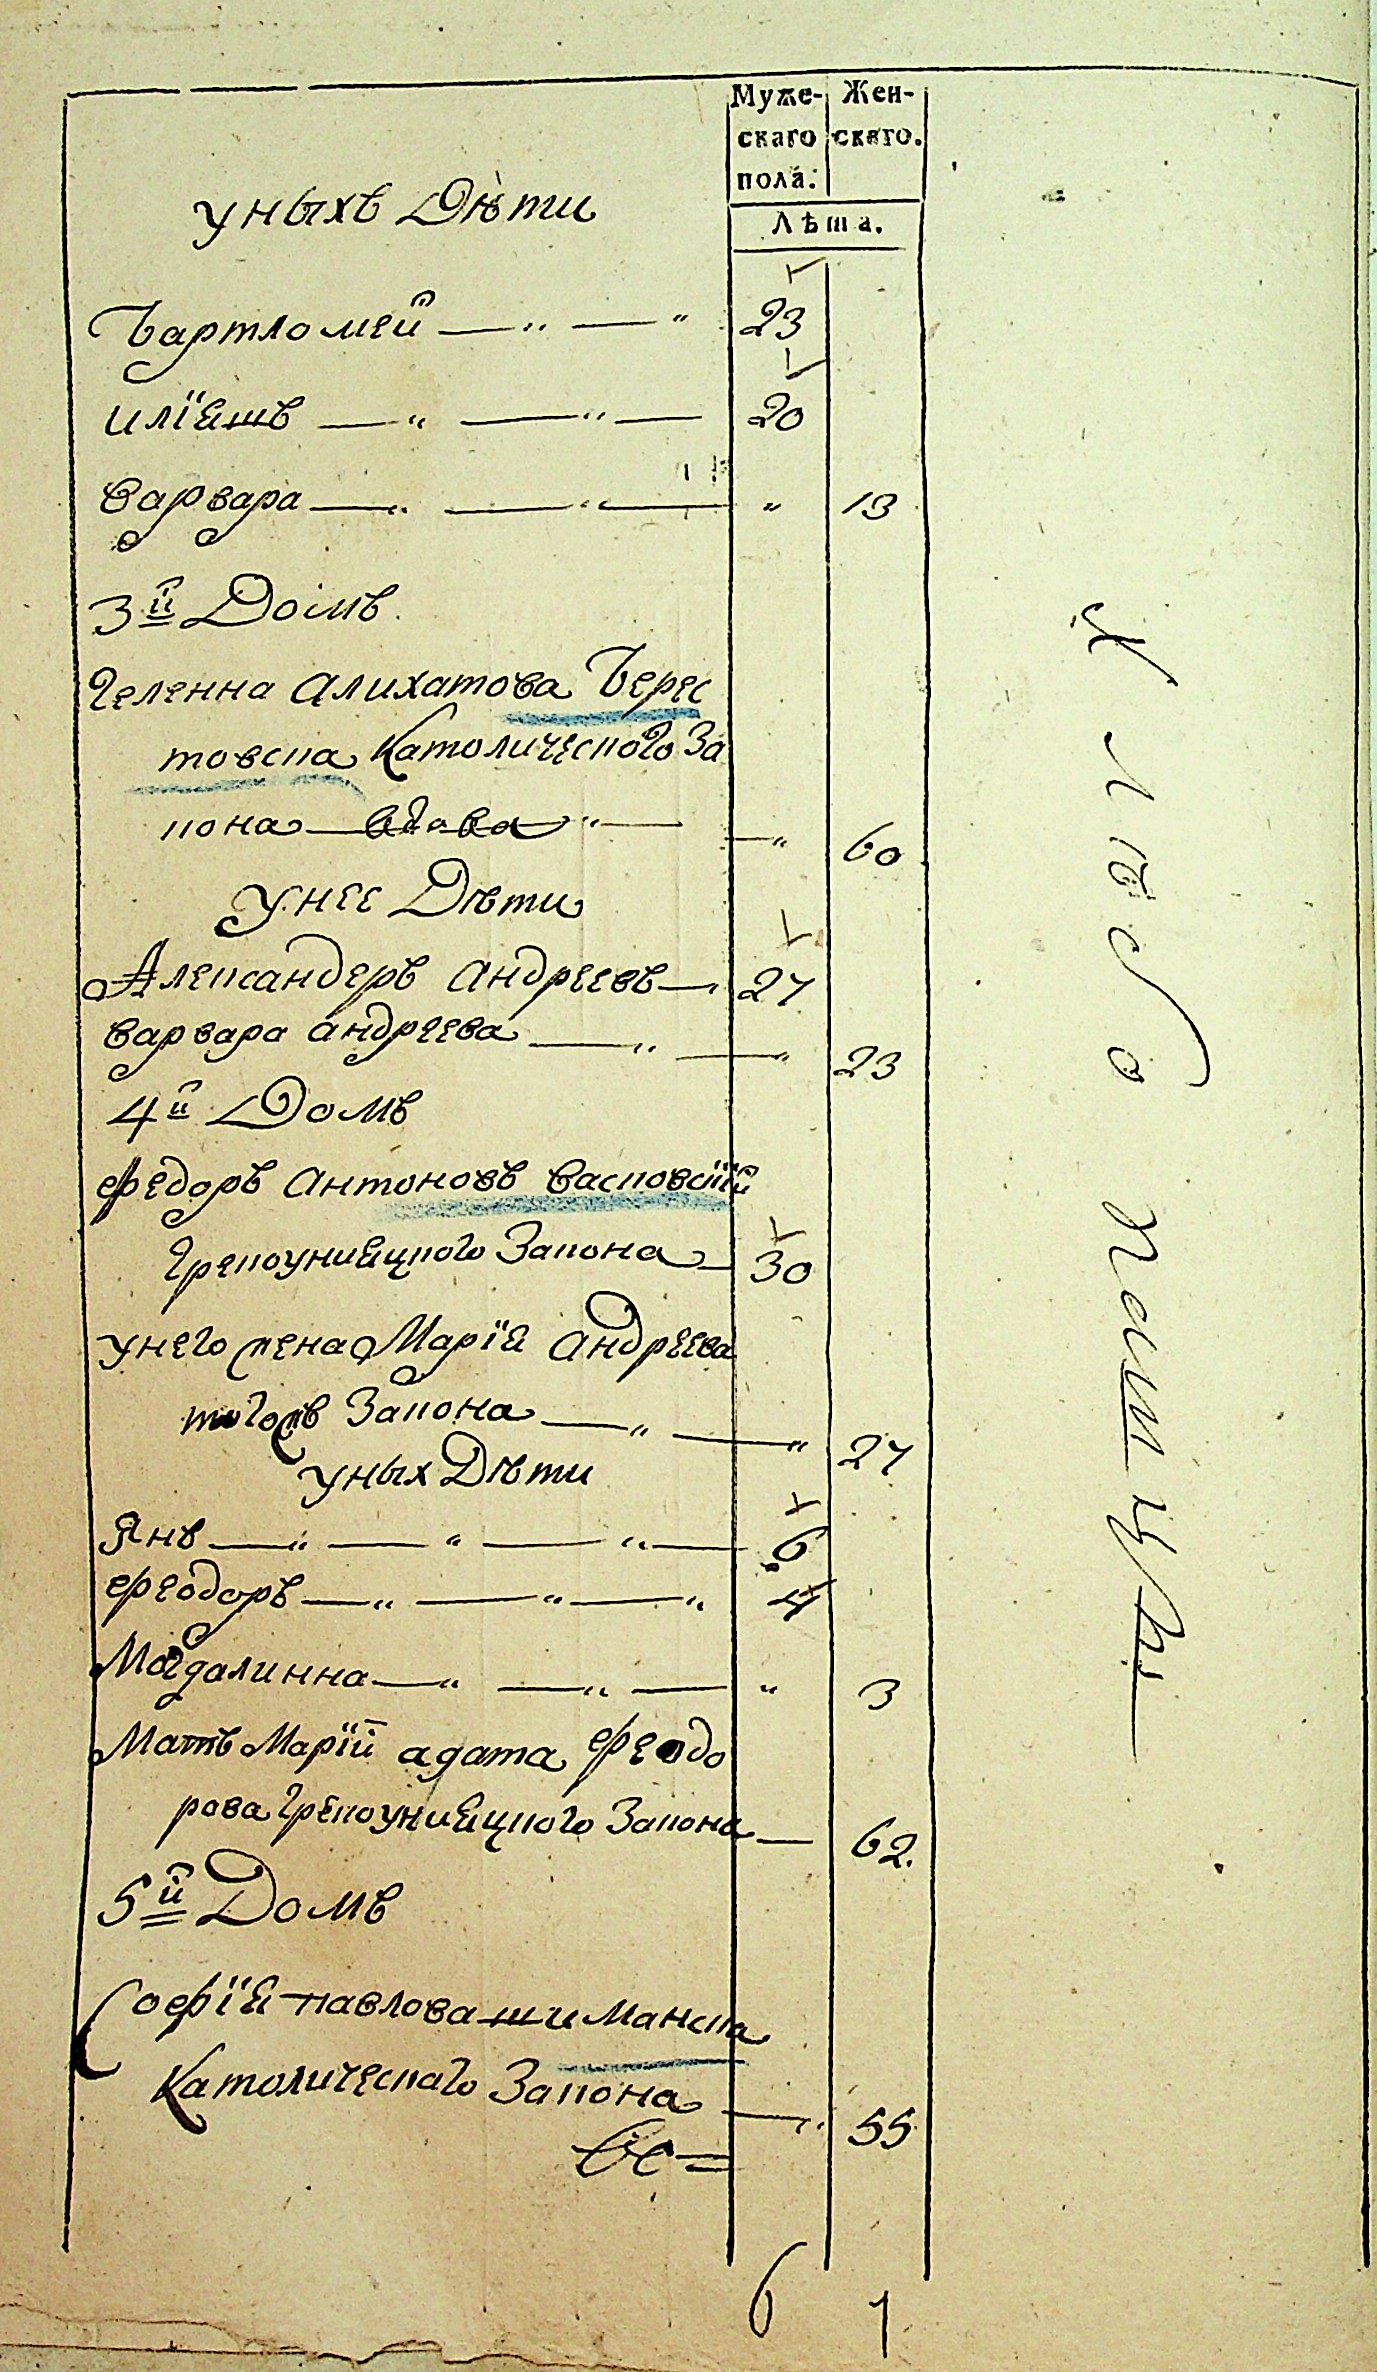 Муже-
скаго
пола.
Жен-
скаго.
Лѣта.
уныхъ Дѣти
Бартломей — " — " 23
илїяшъ — " — " — 20
варвара — " — " — " 13
3й Домъ
Геленна Алихатова Берес
товска Католического За
кона — вдова " — — " 60
унее Дѣти
Александеръ Андреевъ — " 27
варвара андреева — " — " 23
4й Домъ
Федоръ Антоновъ васковскїй
Грекоунияцкого Закона — 30
унего жена Марїя Андреева
тогожъ Закона — " — " 27
уных Дѣти
Янъ — " — " — " — 6
Феодоръ — " — " — " 4
Магдалинна — " — " — " 3
Мать Марїй агата Феодо
рова Грекоунияцкого Закона — 62.
5й Домъ
Софїя павлова шиманска
Католическаго Закона — " 55
6 7